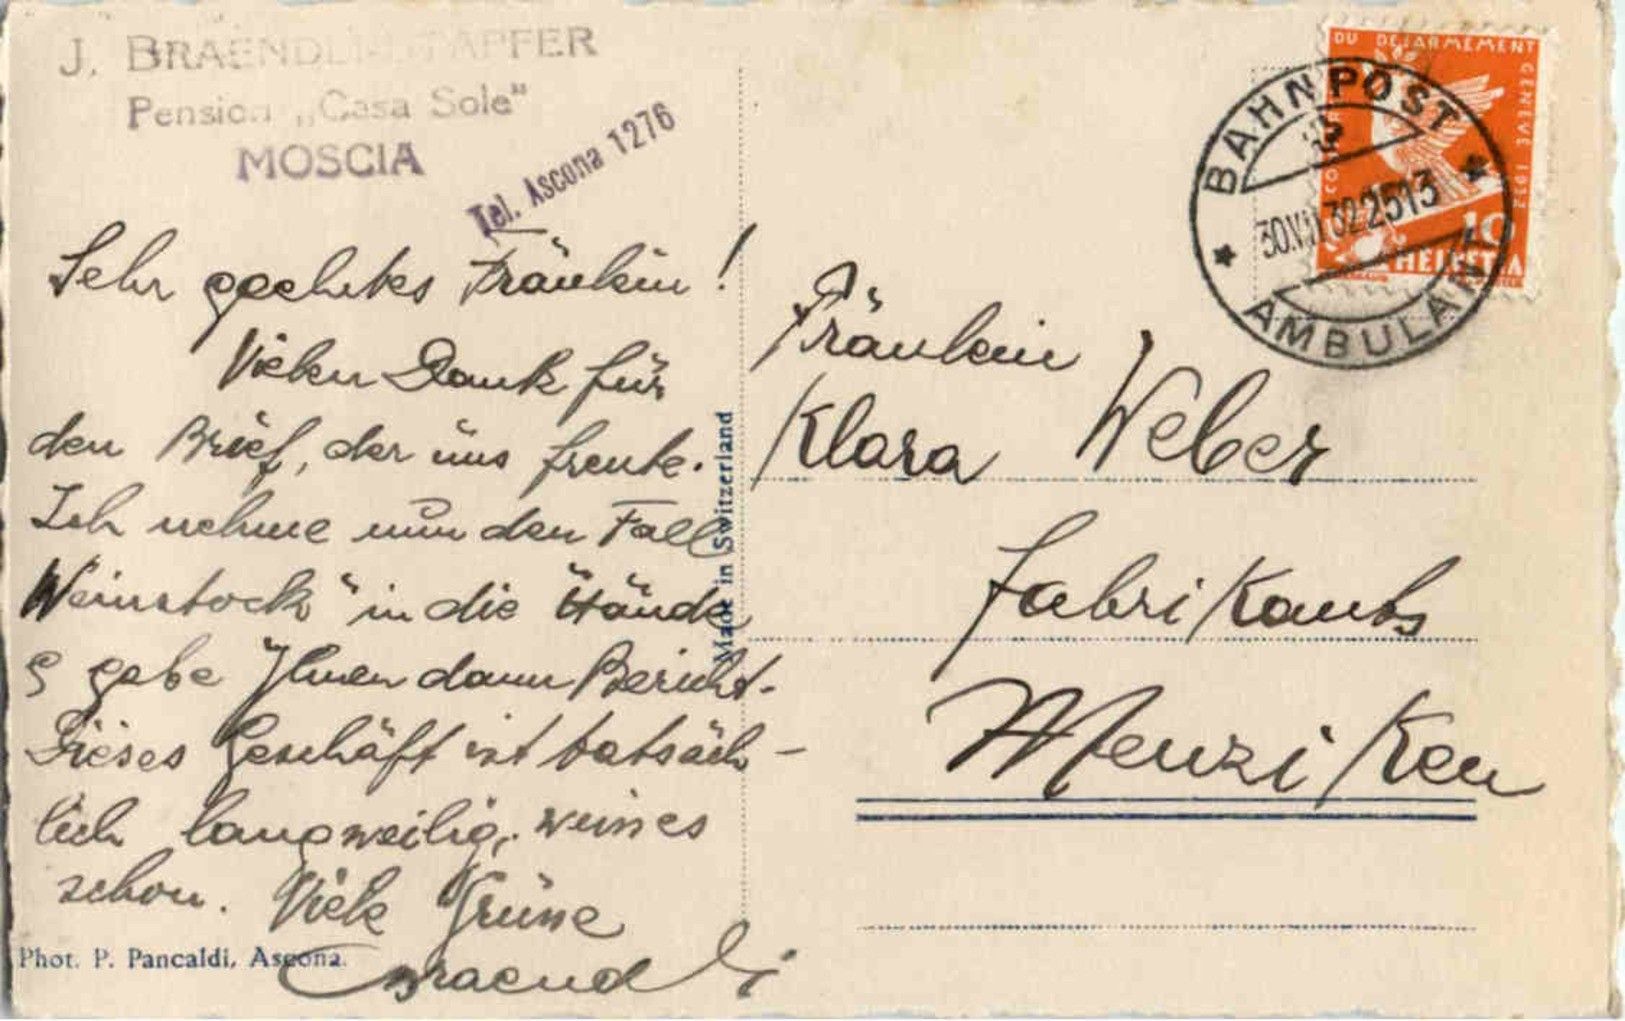 J. BRAENDLI-STAPFER
Pension „Casa Sole"
MOSCIA
Tel. Ascona 1276
Sehr geehrtes Fräulein!
Vielen Dank für
den Brief, der uns freute.
Ich nehme nun den Fall
Weinstock" in die Hände
& gebe Ihnen dann Bericht.
Dieses Geschäft ist tatsäch-
lich langweilig,
schon. Viele Grüsse
Braendli
Phot. P. Pancaldi, Ascona.
Made in Switzerland
DU DESARMEMENT
GENEVE 1932
10
HELVETIA
BAHNPOST
30.VII.32 2513
AMBULANT
Fräulein
Klara Weber
Fabrikants
Menziken